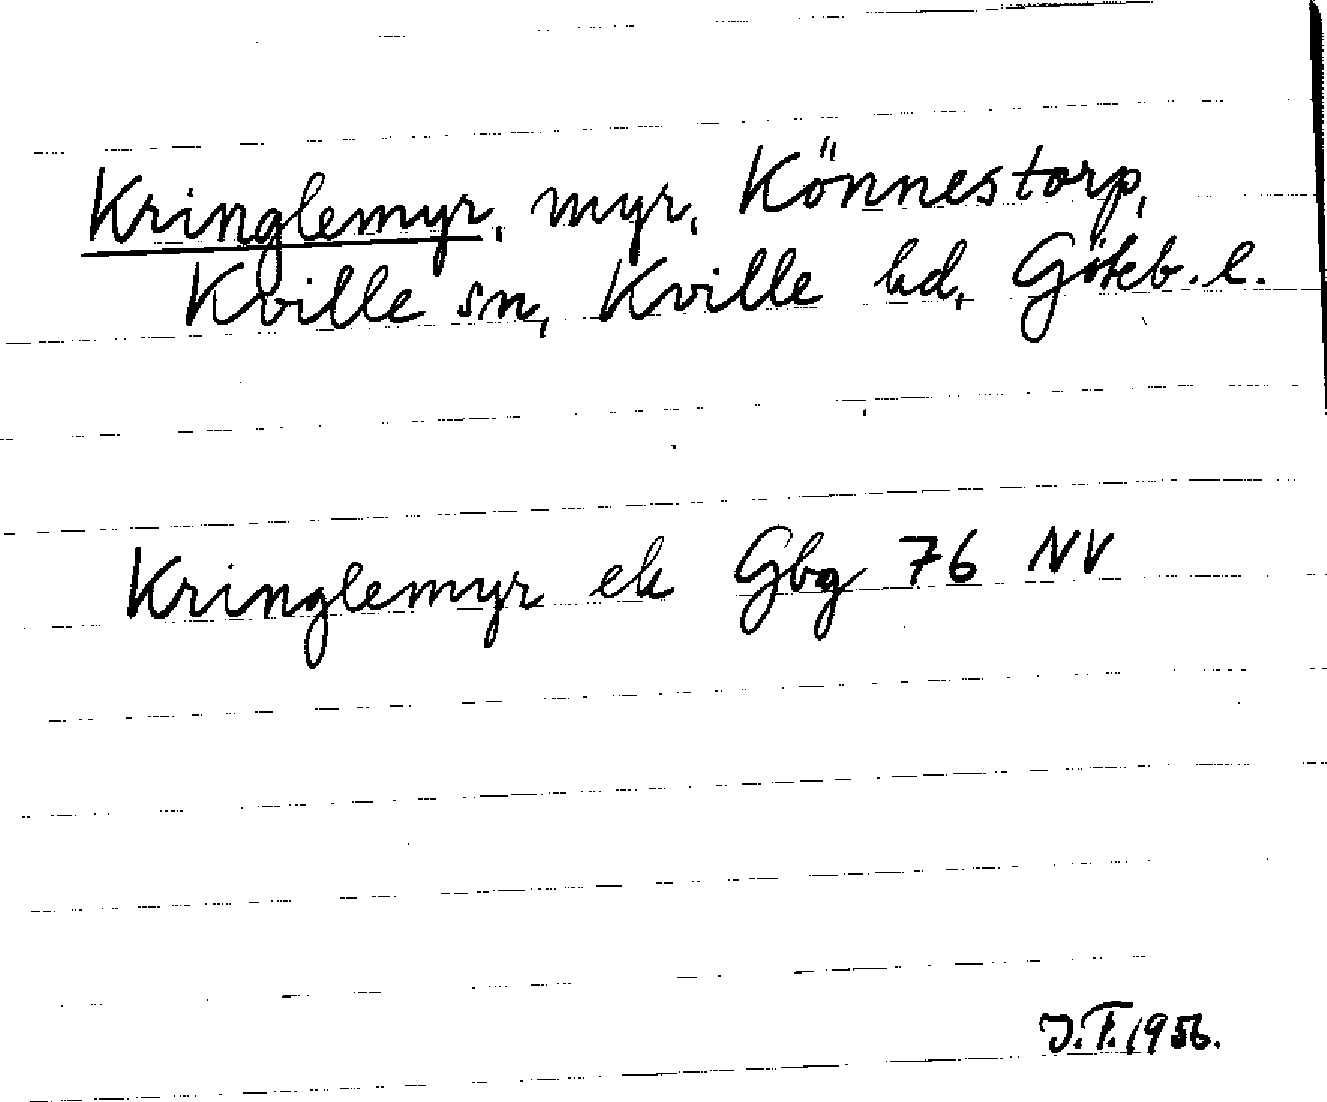 Kringlemyr, myr, Könnestorp,
Kville sn, Kville hd, Göteb. l.
Kringlemyr ek Gbg 76 NV
J.T. 1956.